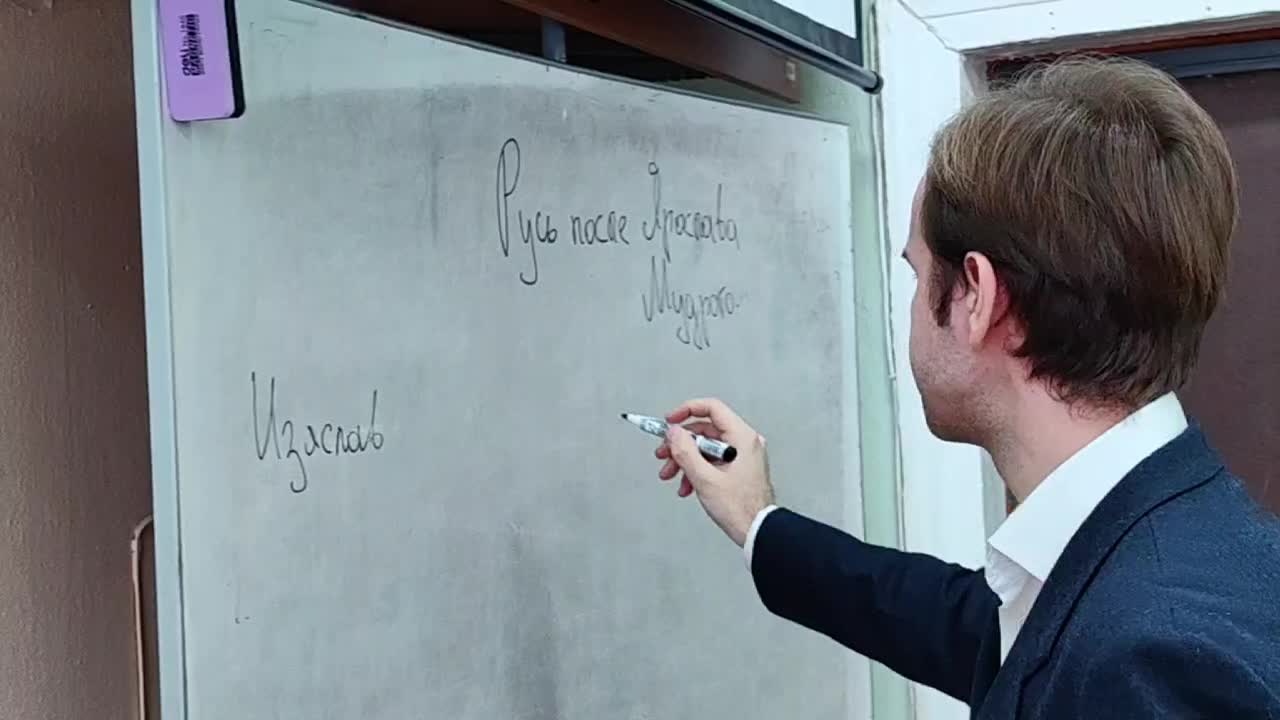 Русь после Ярослава
Мудрого
Изяслав